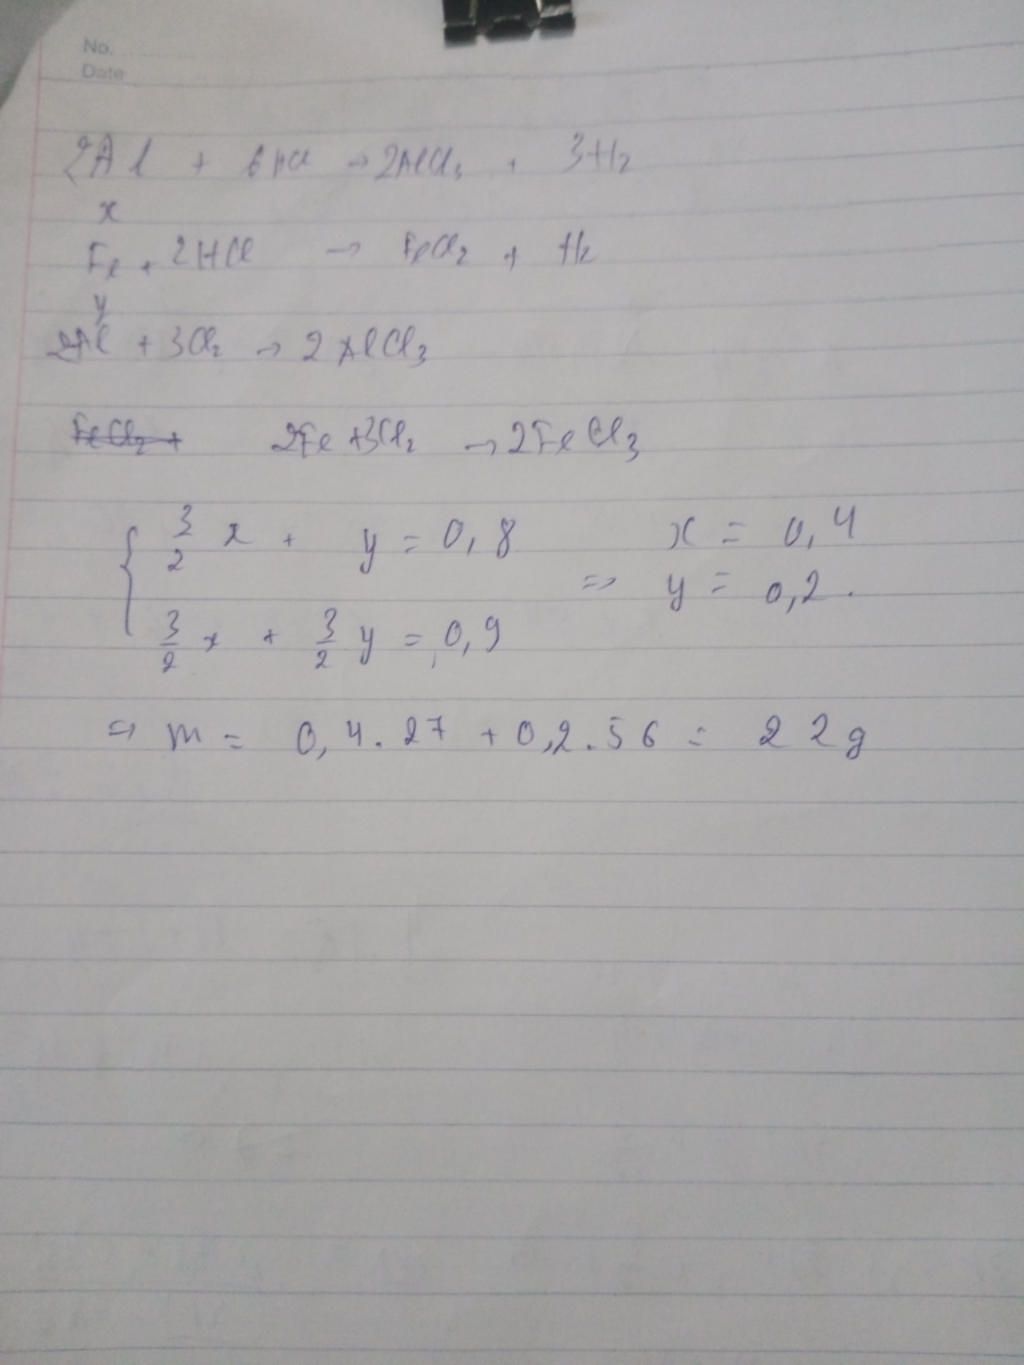 No.
Date
2Al + 6HCl → 2AlCl3 + 3H2
x
Fe + 2HCl → FeCl2 + H2
y
2Al + 3Cl2 → 2AlCl3
FeCl2 + 2Fe + 3Cl2 → 2FeCl3
3/2 x + y = 0,8 x = 0,4
⇒ y = 0,2.
3/2 x + 3/2 y = 0,9
⇒ m = 0,4.27 + 0,2.56 = 22g